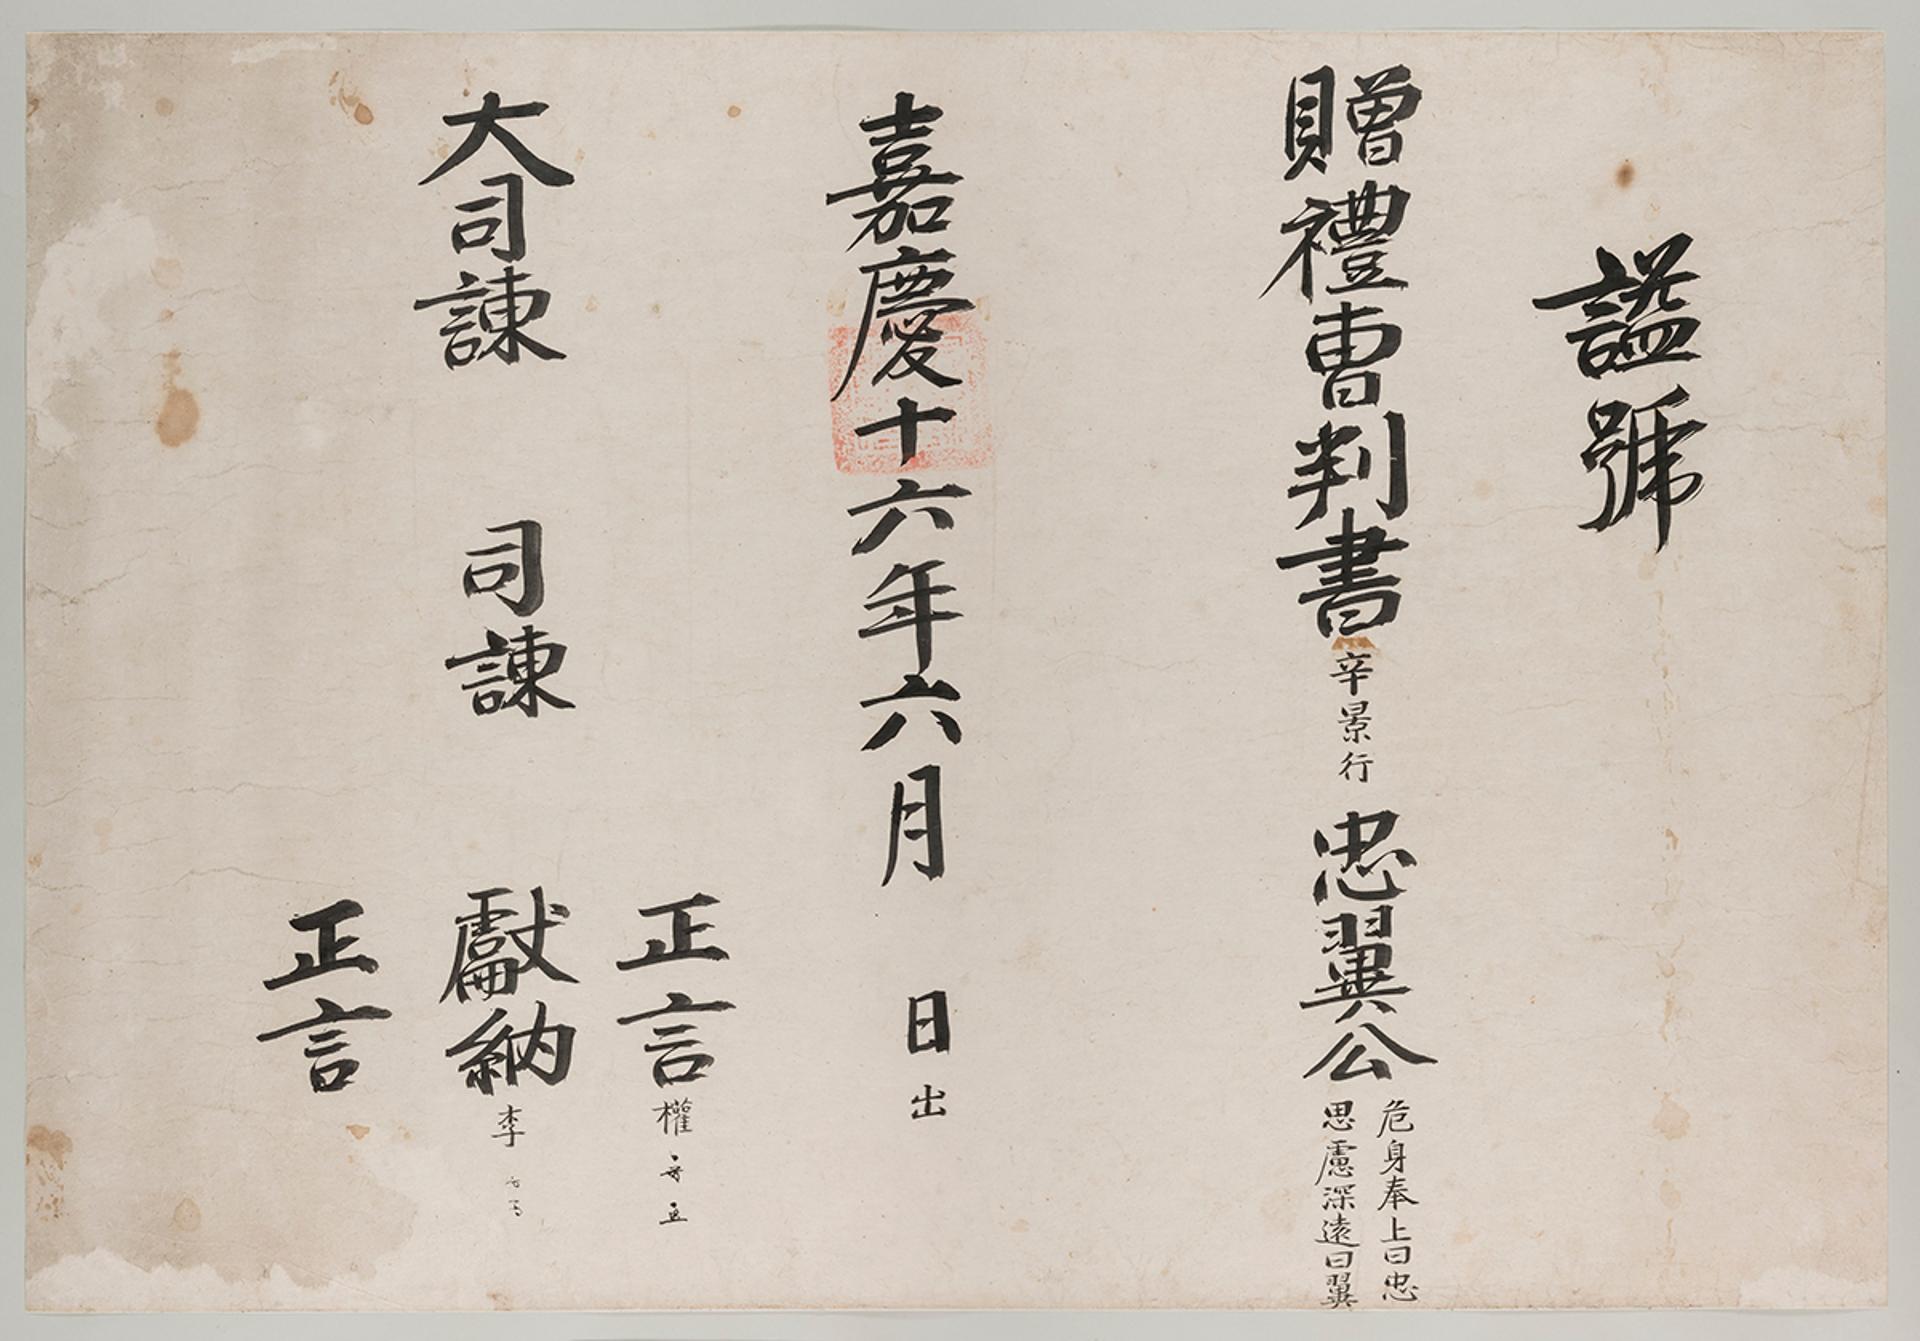 諡號
贈禮曹判書辛景行忠翼公
危身奉上曰忠
思慮深遠曰翼
嘉慶十六年六月 日出
正言權
大司諫 司諫 獻納李
正言